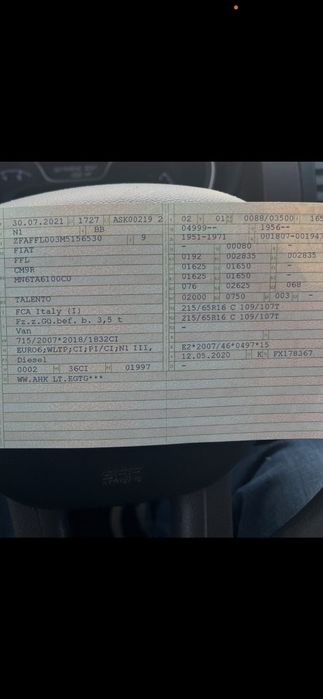 30.07.2021 1727 ASK00219 2
N1 BB
ZFAFFL003M5156530 9
FIAT
FFL
CM9R
MN6TA6100CU
TALENTO
FCA Italy (I)
Fz.z.Gü.bef. b. 3,5 t
Van
715/2007*2018/1832CI
EURO6;WLTP;CI;PI/CI;N1 III,
Diesel
0002 36CI 01997
WW.AHK LT.EGTG***
02 01 0088/03500 165
04999-- 1956--
1951-1971 001807-001947
- 00080 -
0192 002835 002835
01625 01650 -
01625 01650 -
076 02625 068
02000 0750 003 -
215/65R16 C 109/107T
215/65R16 C 109/107T
-
-
E2*2007/46*0497*15
12.05.2020 K FX178367
-